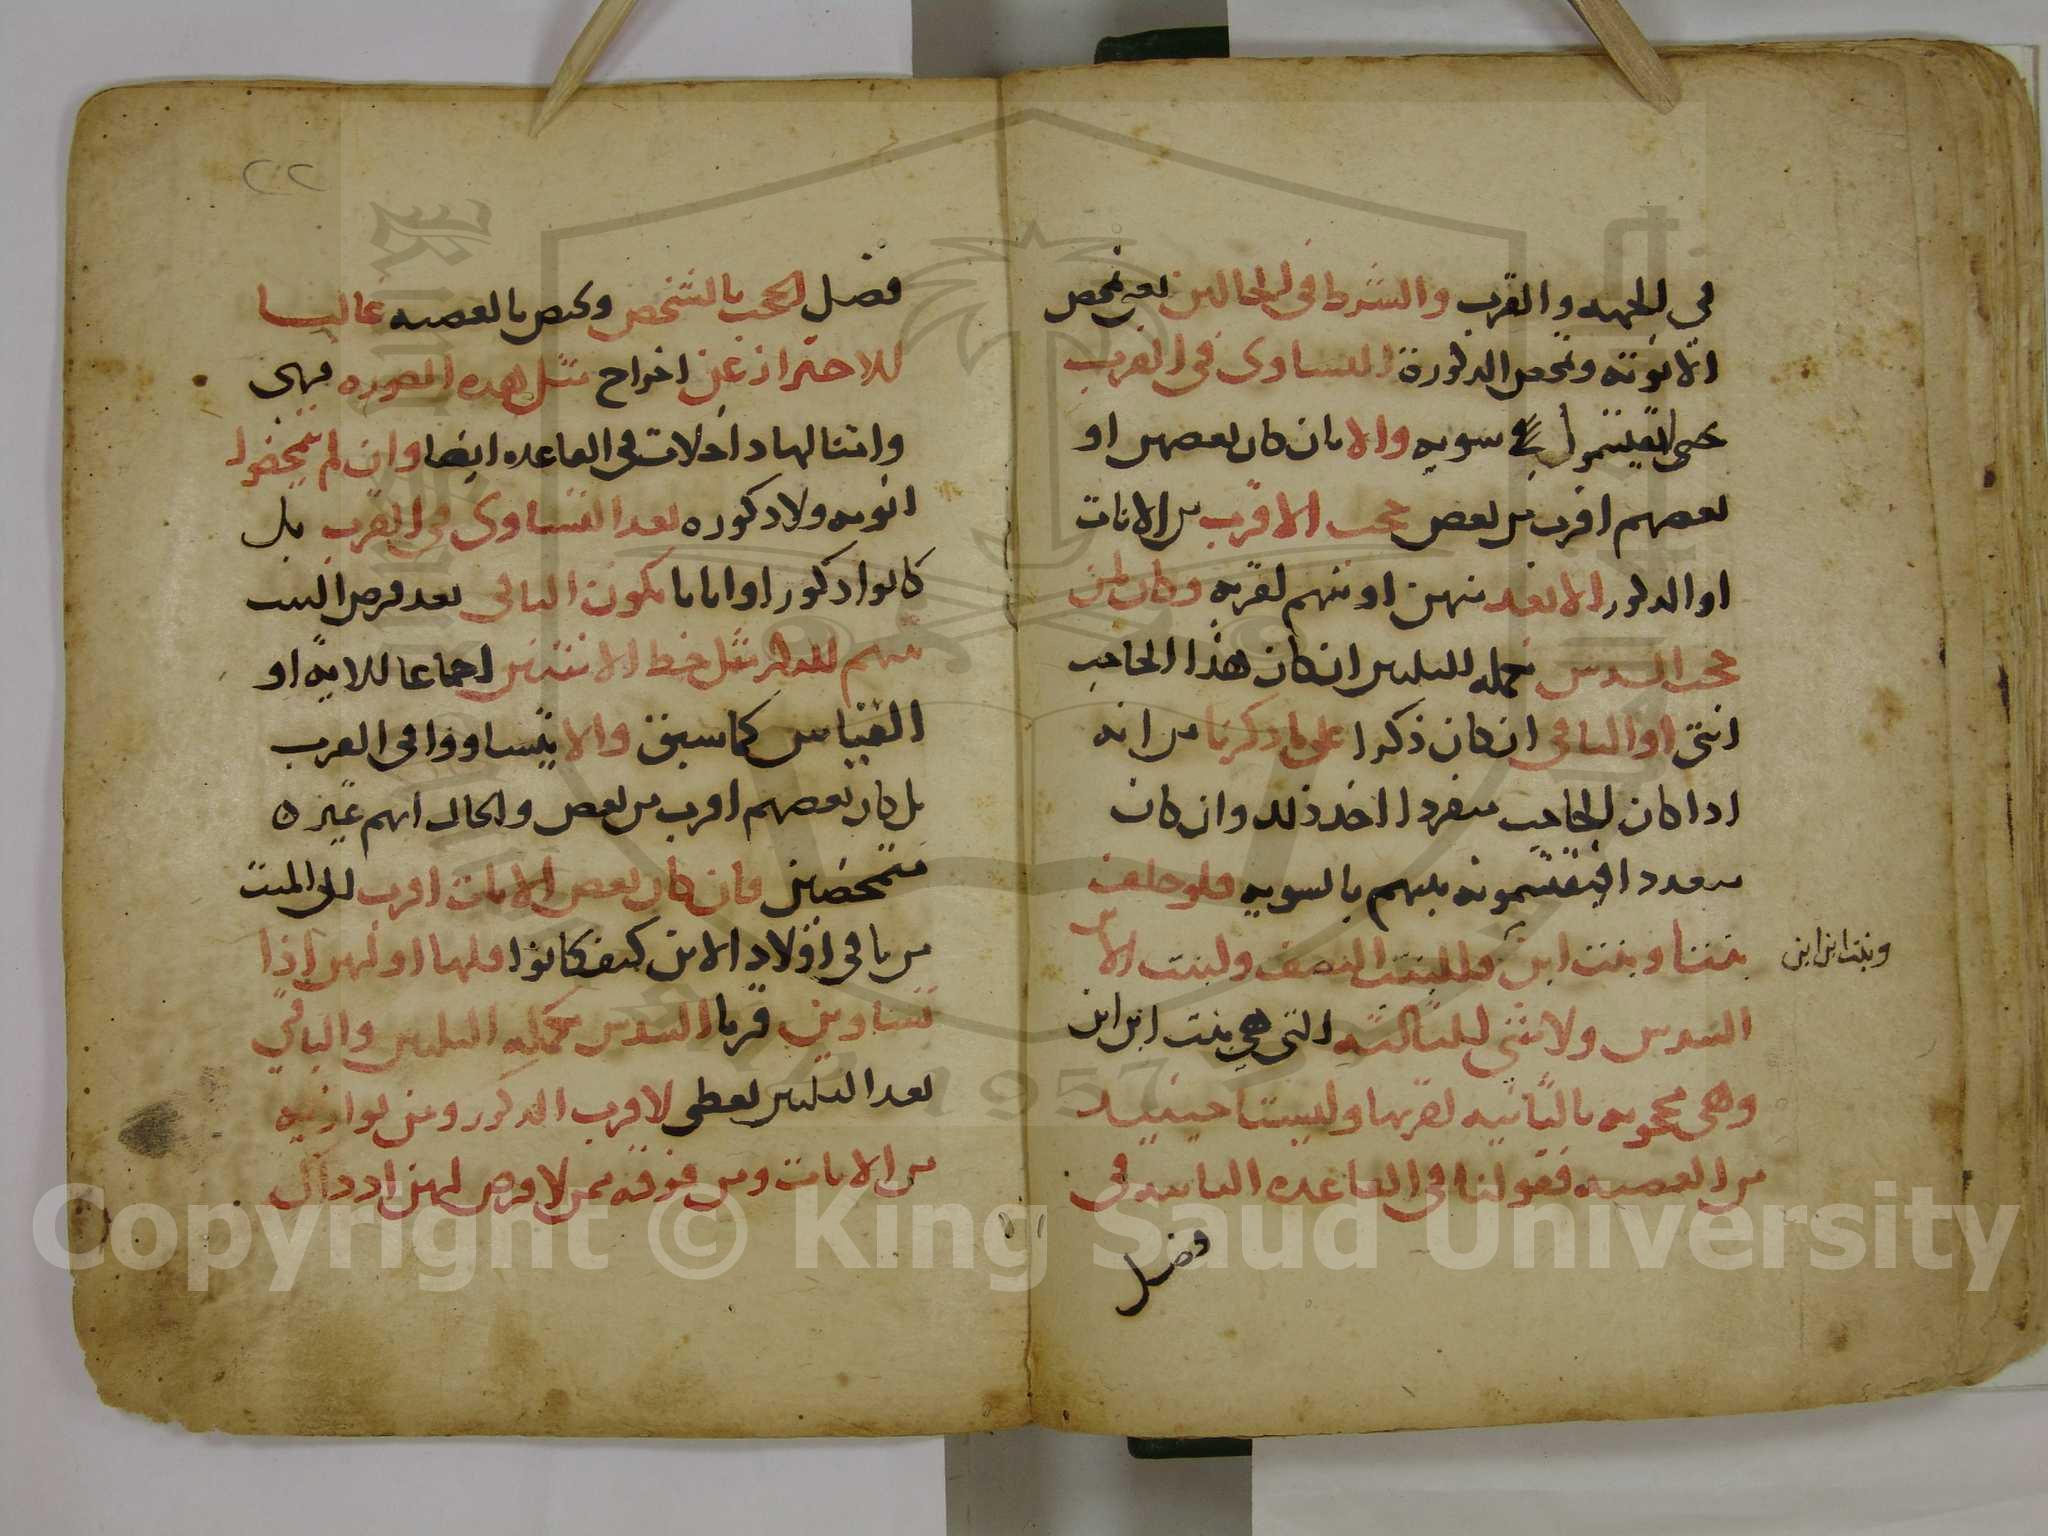 في الجهه والقرب والشرط في الحالين تمحض
الانوثه وتمحض الذكورة التساوى في القرب
سويه والا بان كان بعضهن او
بعضهم اقرب من بعض حجب الاقرب من الاناث
او الذكور الابعد منهن او منهم لقربه وكان لمن
حجب السدس تكمله الثلثين ان كان هذا الحاجب
انثى او الباقى ان كان ذكرا على ما ذكرنا من انه
اذا كان الحاجب منفردا اخذ ذلك وان كان
متعددا فيقتسمونه بينهم بالسويه فلو خلف
بنتا وبنت ابن فللبنت النصف ولبنت الابن
وبنت ابن ابن
السدس ولا شى للثالثه التى هي بنت ابن ابن
وهي محجوبه بالثانيه لقربها وليست حينيذ
من العصبه فقولنا في القاعده الثانيه في
فضل
فضل الحجب بالشخص وتحص بالعصبه غالبا
للاحتراز عن اخراج مثل هذه الصوره فهى
وامثالها داخلات في القاعده ايضا وان لم يتمحضوا
انوثه ولا ذكوره بعد التساوى في القرب بل
كانوا ذكورا واناثا يكون الباقى بعد فرض البنت
منهم للذكر مثل حظ الانثيين اجماعا للايه او
القياس كما سبق والا يتساووا في القرب
بل كان بعضهم اقرب من بعض والحال انهم غير
متمحضين فان كان بعض الاناث اقرب الى الميت
من باقى اولاد الابن كيف كانوا فلها او لهن اذا
تساوين قربا السدس تكمله الثلثين والباقي
بعد الثلثين يعطى لاقرب الذكور ومن يوازيه
من الاناث ومن فوقه ممن لا فرض لهن اذ ذاك
٢٠٢
Copyright © King Saud University
1957